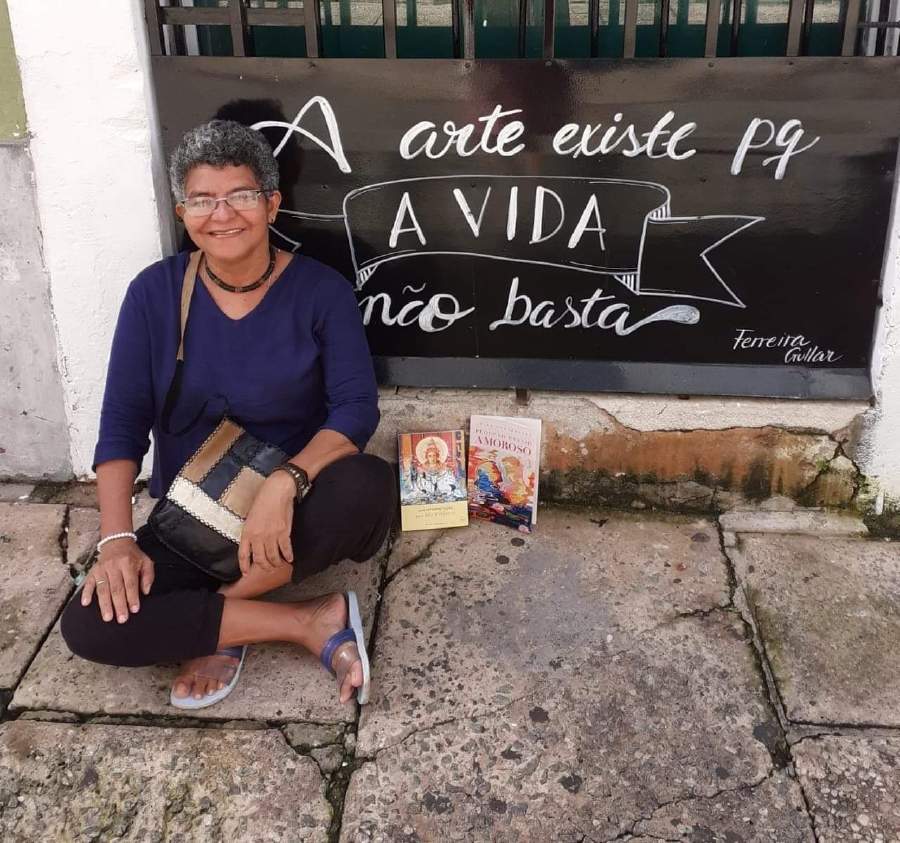 A arte existe pq
A VIDA
não basta
Ferreira
Gullar
AMOROSO